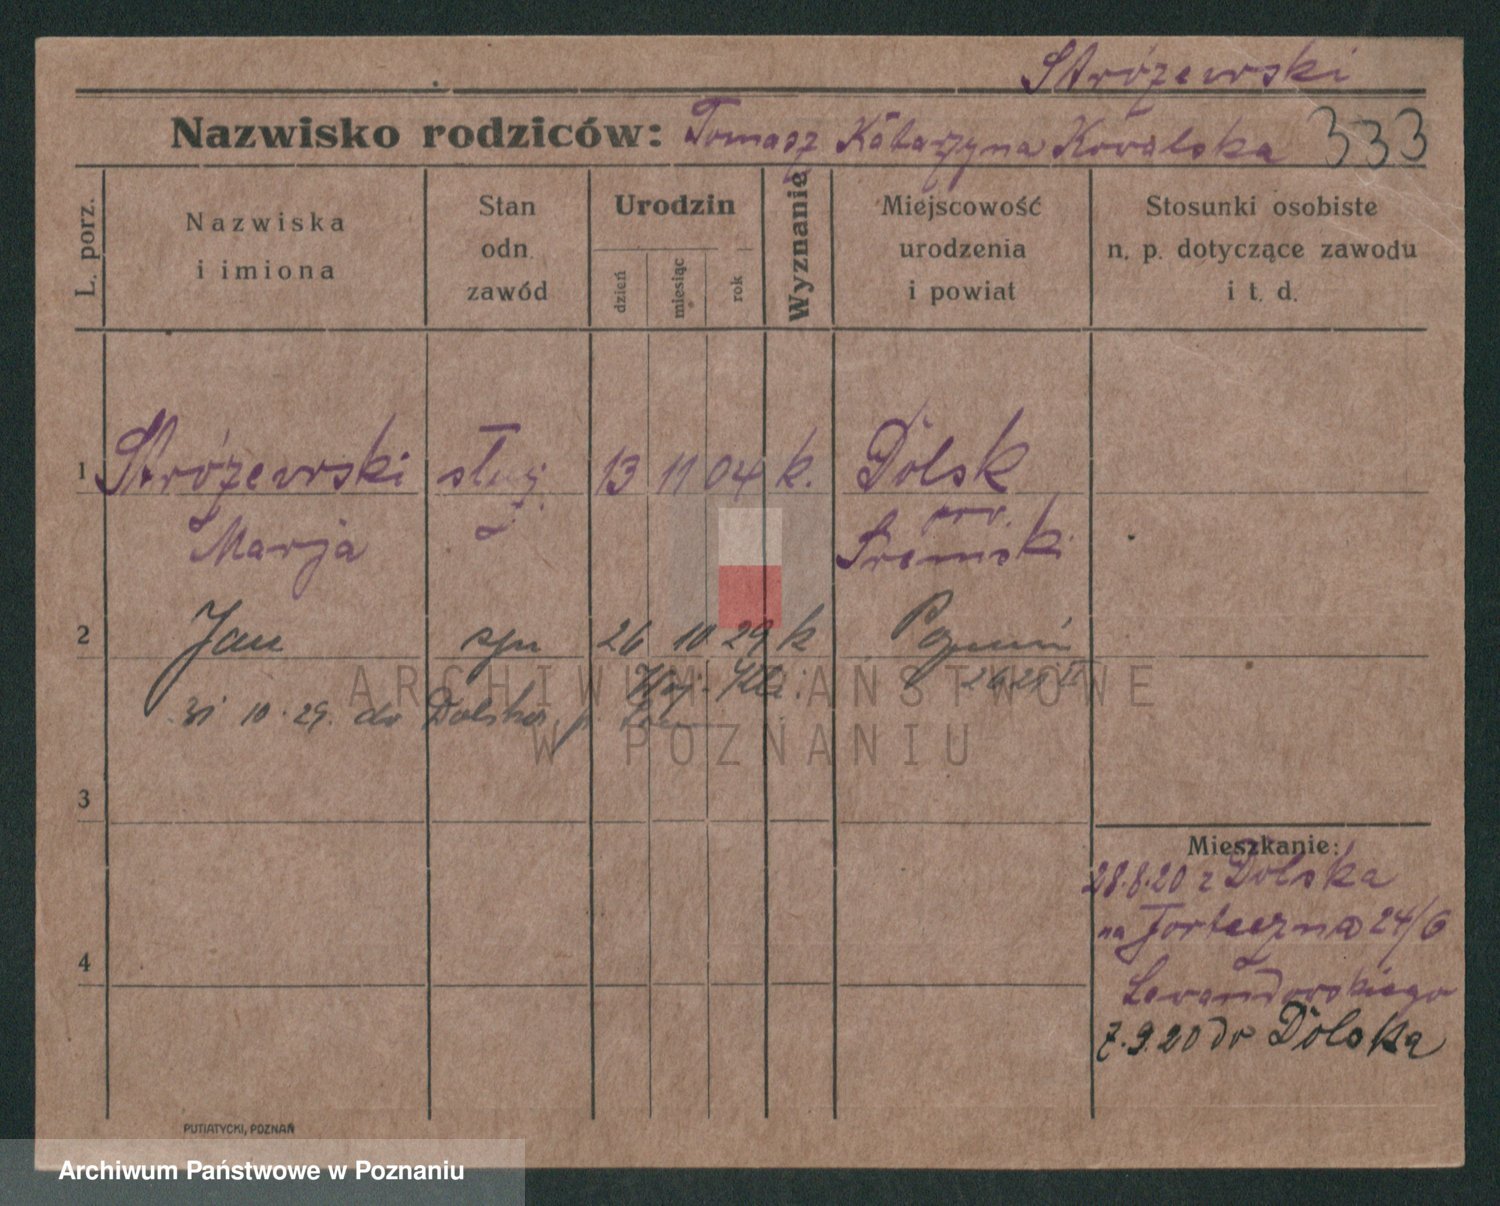 Stróżewski
Nazwisko rodziców: Tomasz Katarzyna Kowalska 333
L. porz.
Nazwiska
i imiona
Stan
odn.
zawód
Urodzin
dzień
miesiąc
rok
Wyznanie
Miejscowość
urodzenia
i powiat
Stosunki osobiste
n. p. dotyczące zawodu
i t. d.
1 Stróżewski służ. 13 11 04 k. Dolsk
Marja pow. Śremski
2 Jan syn 26 10 29 k Poznań
31 10. 29. do Dolska
ARCHIWUM PAŃSTWOWE
W POZNANIU
3
4
Mieszkanie:
28.8.20 z Dolska
na Forteczna 24/6
Lewandowskiego
7.9.20 do Dolska
PUTIATYCKI, POZNAŃ
Archiwum Państwowe w Poznaniu